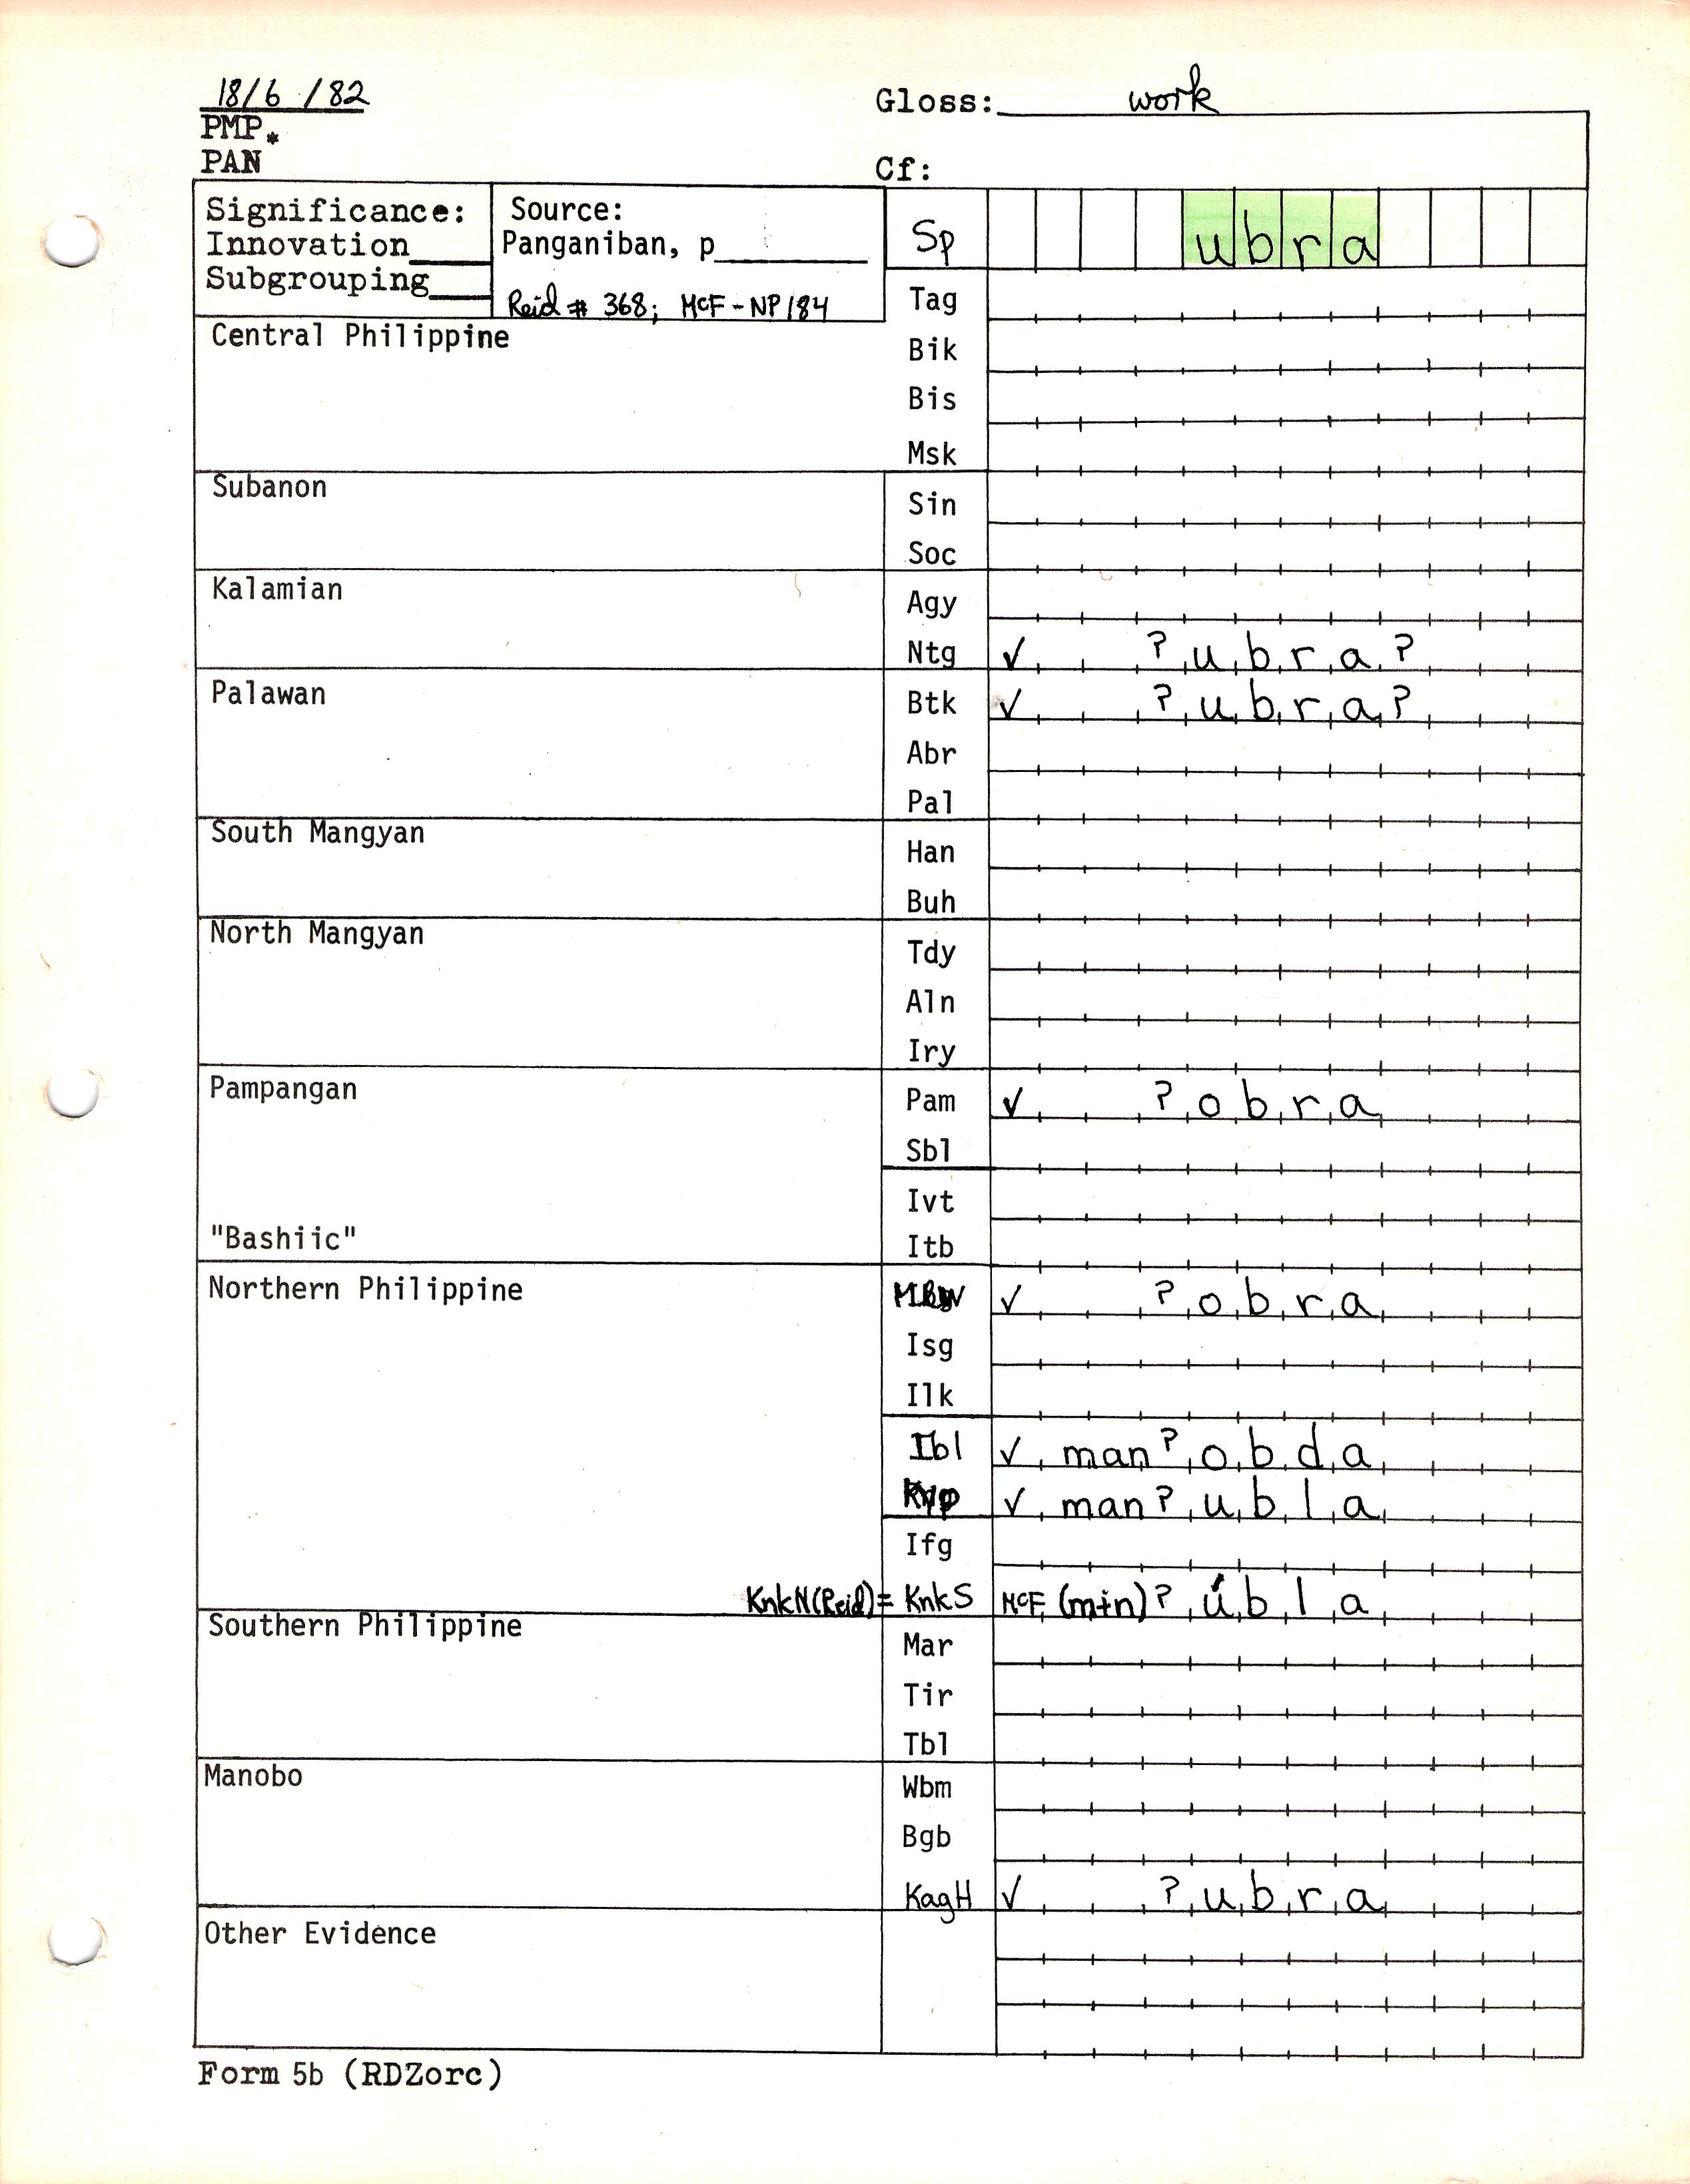 18/6/82
Gloss: work
PMP*
PAN
Cf:
Significance:
Innovation____
Subgrouping____
Source:
Panganiban, p______
Reid # 368; McF-NP184
Sp ubra
Tag
Central Philippine
Bik
Bis
Msk
Subanon
Sin
Soc
Kalamian
Agy
Ntg ✓ ?ubra?
Palawan
Btk ✓ ?ubra?
Abr
Pal
South Mangyan
Han
Buh
North Mangyan
Tdy
Aln
Iry
Pampangan
Pam ✓ ?obra
Sbl
Ivt
"Bashiic"
Itb
Northern Philippine
✓ ?obra
Isg
Ilk
Ibl ✓ man?obda
✓ man?ubla
Ifg
KnkN(Reid)= KnkS McF (mɨn)?úbla
Southern Philippine
Mar
Tir
Tbl
Manobo
Wbm
Bgb
KagH ✓ ?ubra
Other Evidence
Form 5b (RDZorc)